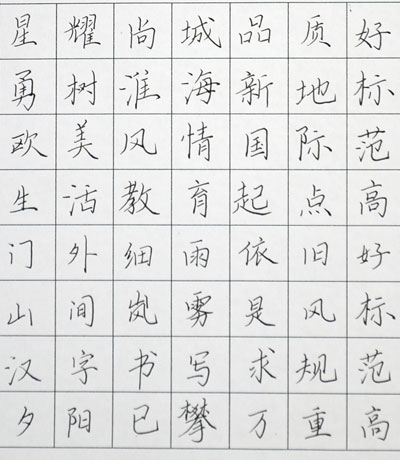 星耀尚城品质好
勇树淮海新地标
欧美风情国际范
生活教育起点高
门外细雨依旧好
山间岚雾是风标
汉字书写求规范
夕阳已攀万重高